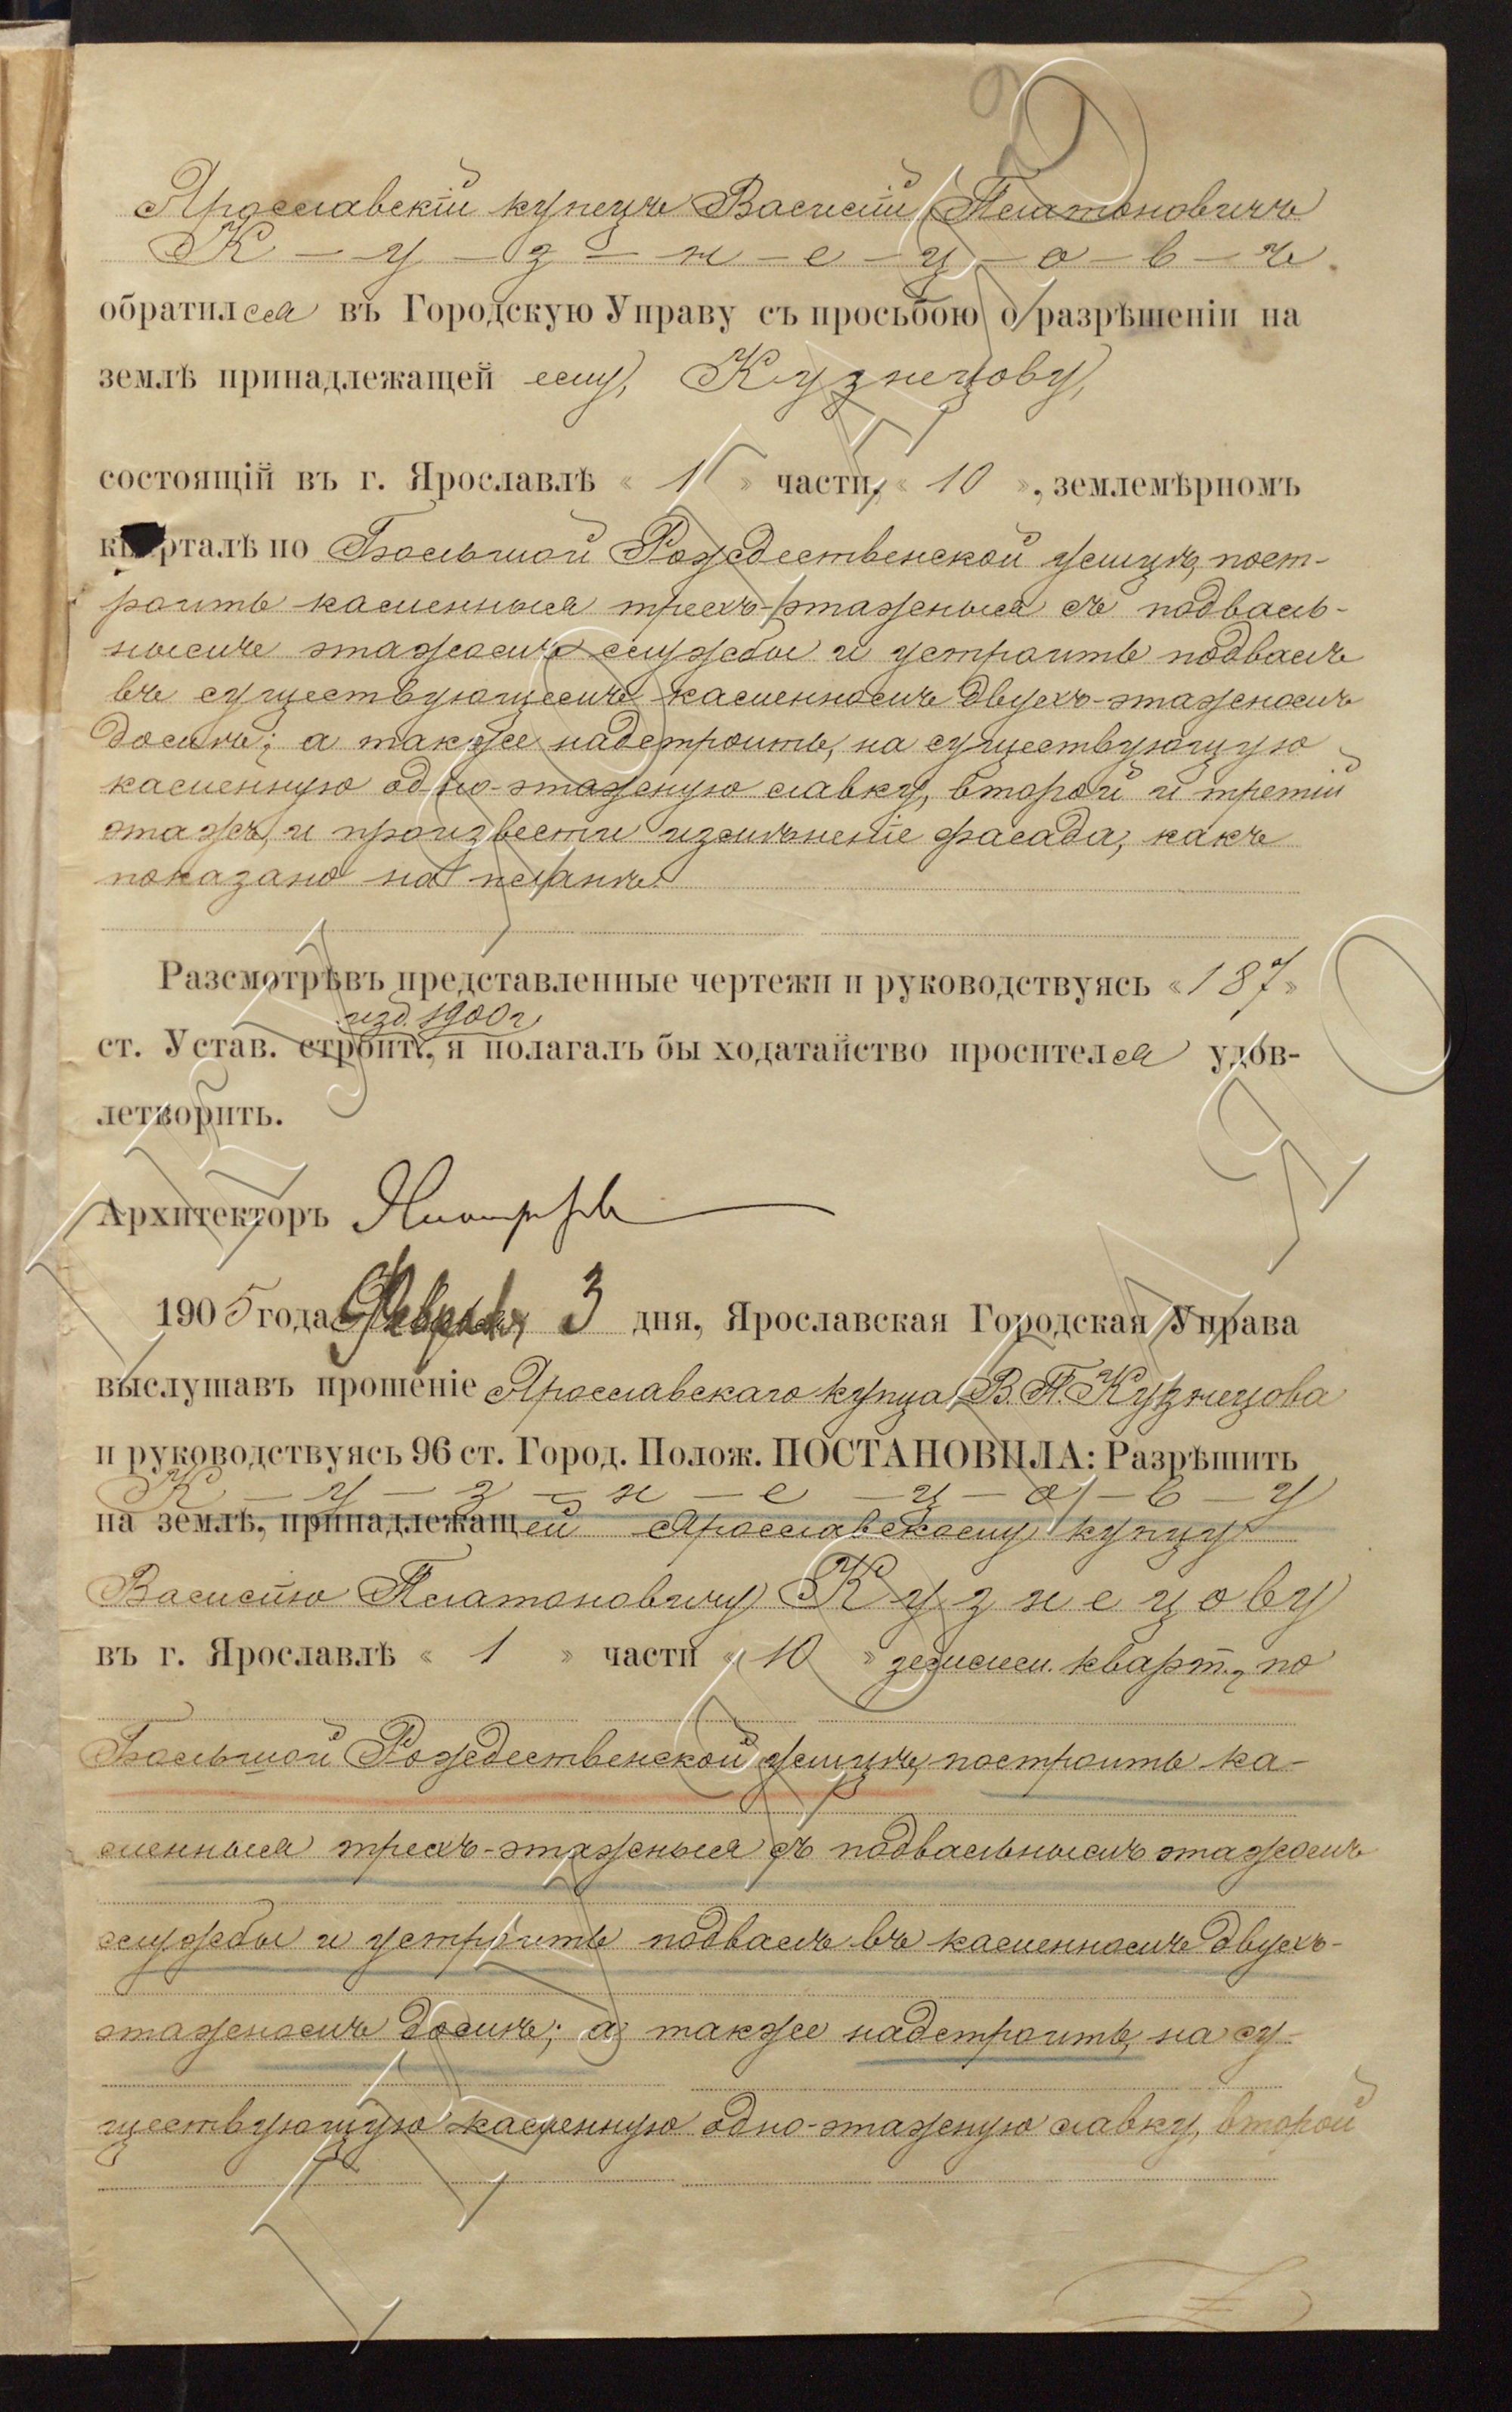 Ярославскій купецъ Василій Платоновичъ
К – у – з – н – е – ц – о – в – ъ
обратился въ Городскую Управу съ просьбою о разрѣшеніи на
землѣ принадлежащей ему, Кузнецову,
состоящій въ г. Ярославлѣ « 1 » части, « 10 », землемѣрномъ
кварталѣ по Большой Рождественской улицѣ, пост-
роить каменныя трехъ-этажныя съ подваль-
нымъ этажомъ службы и устроить подвалъ
въ существующемъ каменномъ двухъ-этажномъ
домѣ; а также надстроить, на существующую
каменную одно-этажную лавку, второй и третій
этажъ, и произвести измѣненіе фасада, какъ
показано на планѣ.
Разсмотрѣвъ представленные чертежи и руководствуясь « 187 »
изд. 1900 г.
ст. Устав. строит., я полагалъ бы ходатайство просителя удов-
летворить.
Архитекторъ
1905 года Февраля 3 дня, Ярославская Городская Управа
выслушавъ прошеніе Ярославскаго купца В. П. Кузнецова
и руководствуясь 96 ст. Город. Полож. ПОСТАНОВИЛА: Разрѣшить
К – у – з – н – е – ц – о – в – у
на землѣ, принадлежащей Ярославскому купцу
Василію Платоновичу Кузнецову
въ г. Ярославлѣ « 1 » части « 10 » землем. кварт., по
Большой Рождественской улицѣ, построить ка-
менныя трехъ-этажныя съ подвальнымъ этажомъ
службы и устроить подвалъ въ каменномъ двухъ-
этажномъ домѣ; а также надстроить, на су-
ществующую каменную одно-этажную лавку, второй